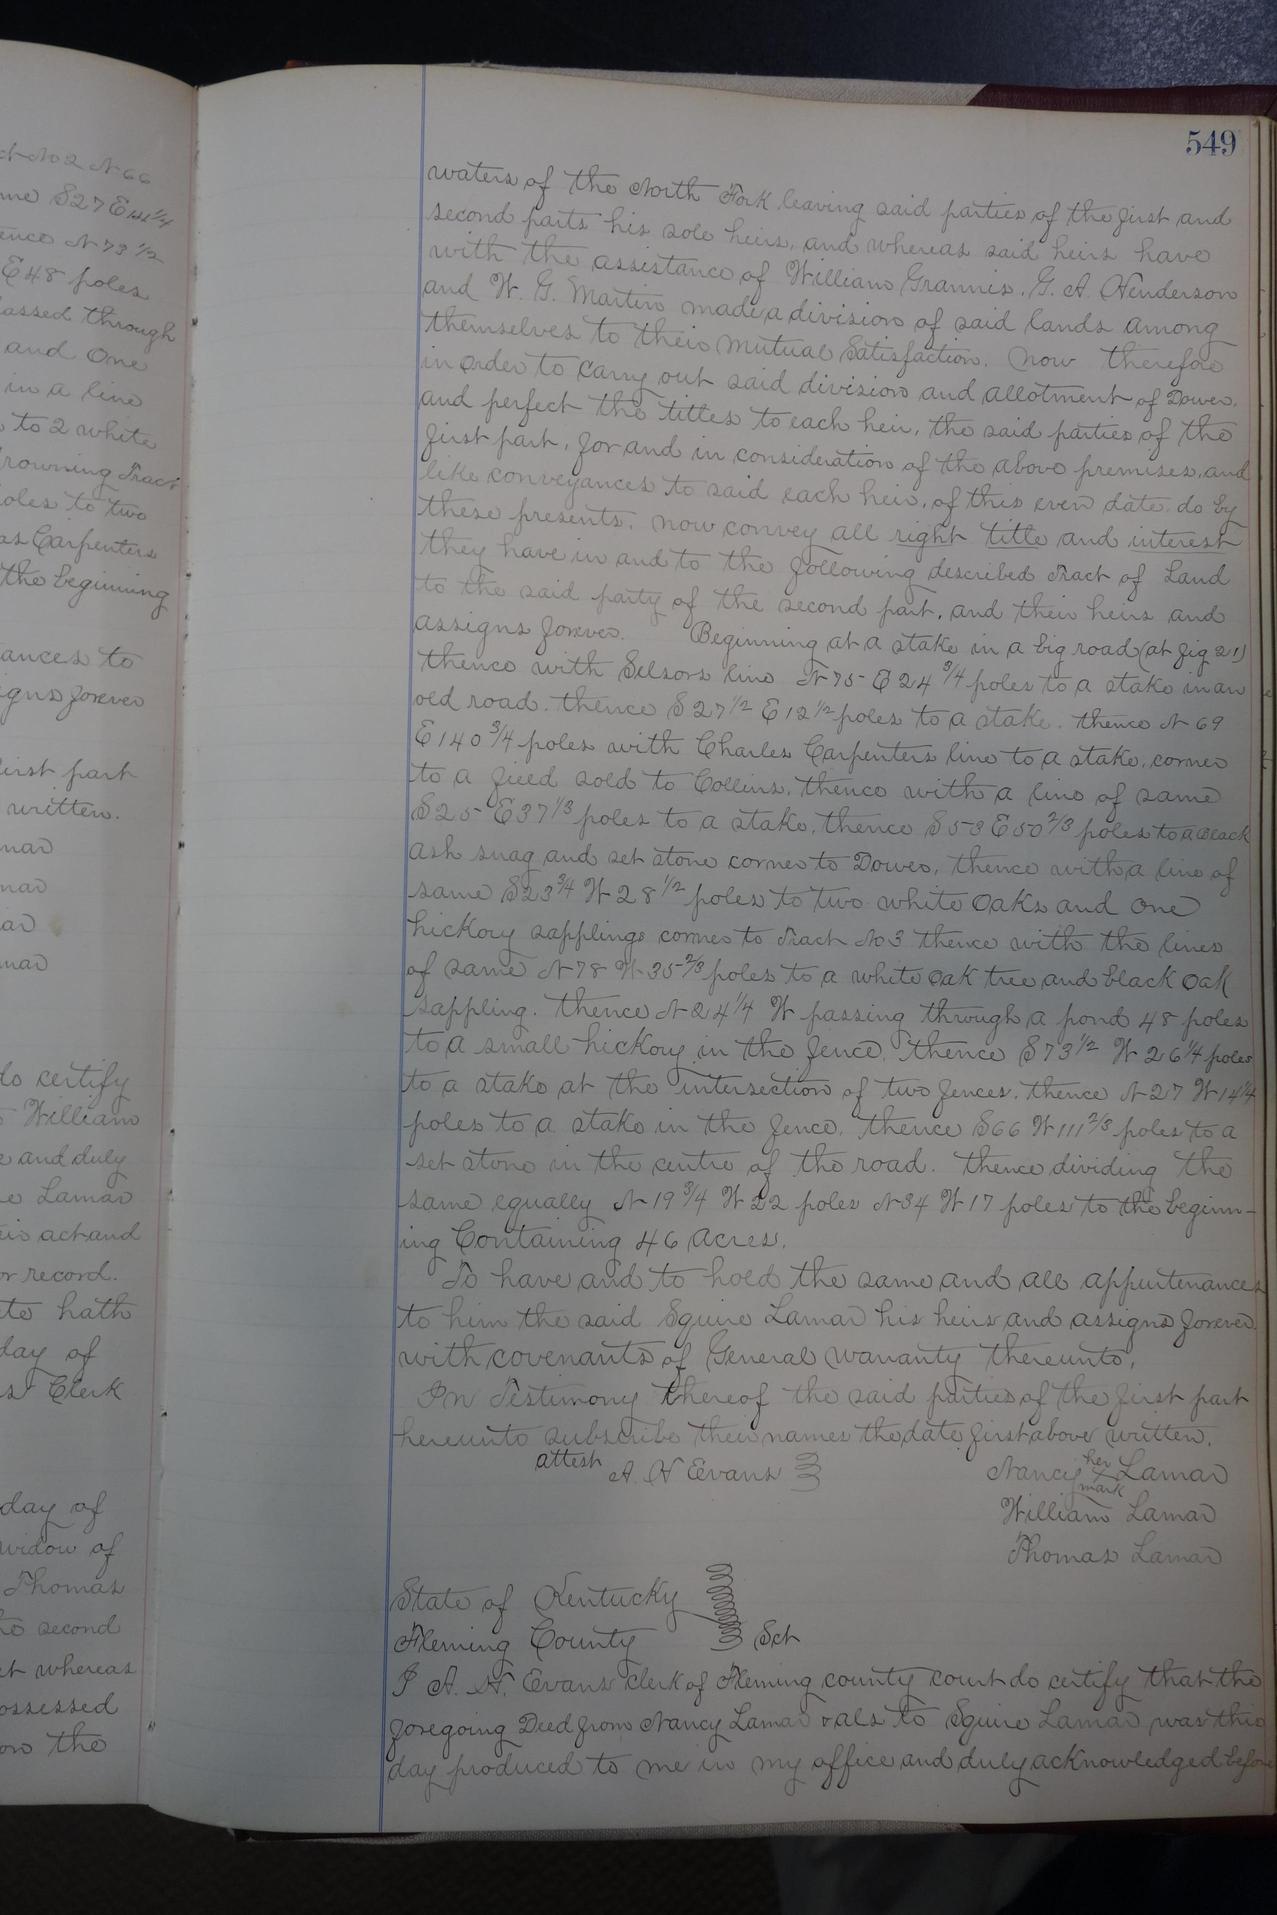 ct No 2 N 66
me S27E 141 1/4
ence N 73 1/2
E 48 poles
assed through
and One
in a line
to 2 white
rowning Tract
oles to two
as Carpenters
the beginning
ances to
igns forever
irst part
written.
mar
mar
ar
mar
do certify
William
e and duly
e Lamar
eir act and
or record.
te hath
day of
s Clerk
day of
widow of
Thomas
to second
et whereas
ossessed
on the
549
waters of the North Fork leaving said parties of the first and
second parts his sole heirs, and whereas said heirs have
with the assistance of William Grannis, G. A. Henderson
and W. G. Martin made a division of said lands among
themselves to their Mutual Satisfaction. Now therefore
in order to carry out said division and allotment of Dower,
and perfect the titles to each heir, the said parties of the
first part, for and in consideration of the above premises, and
like conveyances to said each heir, of this even date do by
these presents, now convey all right title and interest
they have in and to the following described Tract of Land
to the said party of the second part, and their heirs and
assigns forever. Beginning at a stake in a big road (at fig 21)
thence with Selsors line N 75 E 24 3/4 poles to a stake in an
old road. thence S 27 1/2 E 12 1/2 poles to a stake. thence N 69
E 140 3/4 poles with Charles Carpenters line to a stake, corner
to a field sold to Collins, thence with a line of same
S 25 E 37 1/3 poles to a stake, thence S 53 E 50 2/3 poles to a Black
ash snag and set stone corner to Dower, thence with a line of
same S 23 3/4 W 28 1/2 poles to two white Oaks and One
hickory sapplings corner to Tract No 3 thence with the lines
of same N 78 W 35 2/3 poles to a white oak tree and black oak
sappling. thence N 24 1/4 W passing through a pond 48 poles
to a small hickory in the fence, thence S 73 1/2 W 26 1/4 poles
to a stake at the intersection of two fences, thence N 27 W 14 1/4
poles to a stake in the fence, thence S 66 W 111 2/3 poles to a
set stone in the centre of the road. thence dividing the
same equally N 19 3/4 W 22 poles N 34 W 17 poles to the beginn-
ing Containing 46 Acres.
To have and to hold the same and all appurtenances
to him the said Squire Lamar his heirs and assigns forever
with covenants of General Warranty thereunto.
In Testimony thereof the said parties of the first part
hereunto subscribe their names the date first above written.
attest A. H Evans Nancy her x mark Lamar
William Lamar
Thomas Lamar
State of Kentucky
Fleming County Sct
I A. H. Evans Clerk of Fleming county court do certify that the
foregoing Deed from Nancy Lamar & als to Squire Lamar was this
day produced to me in my office and duly acknowledged before